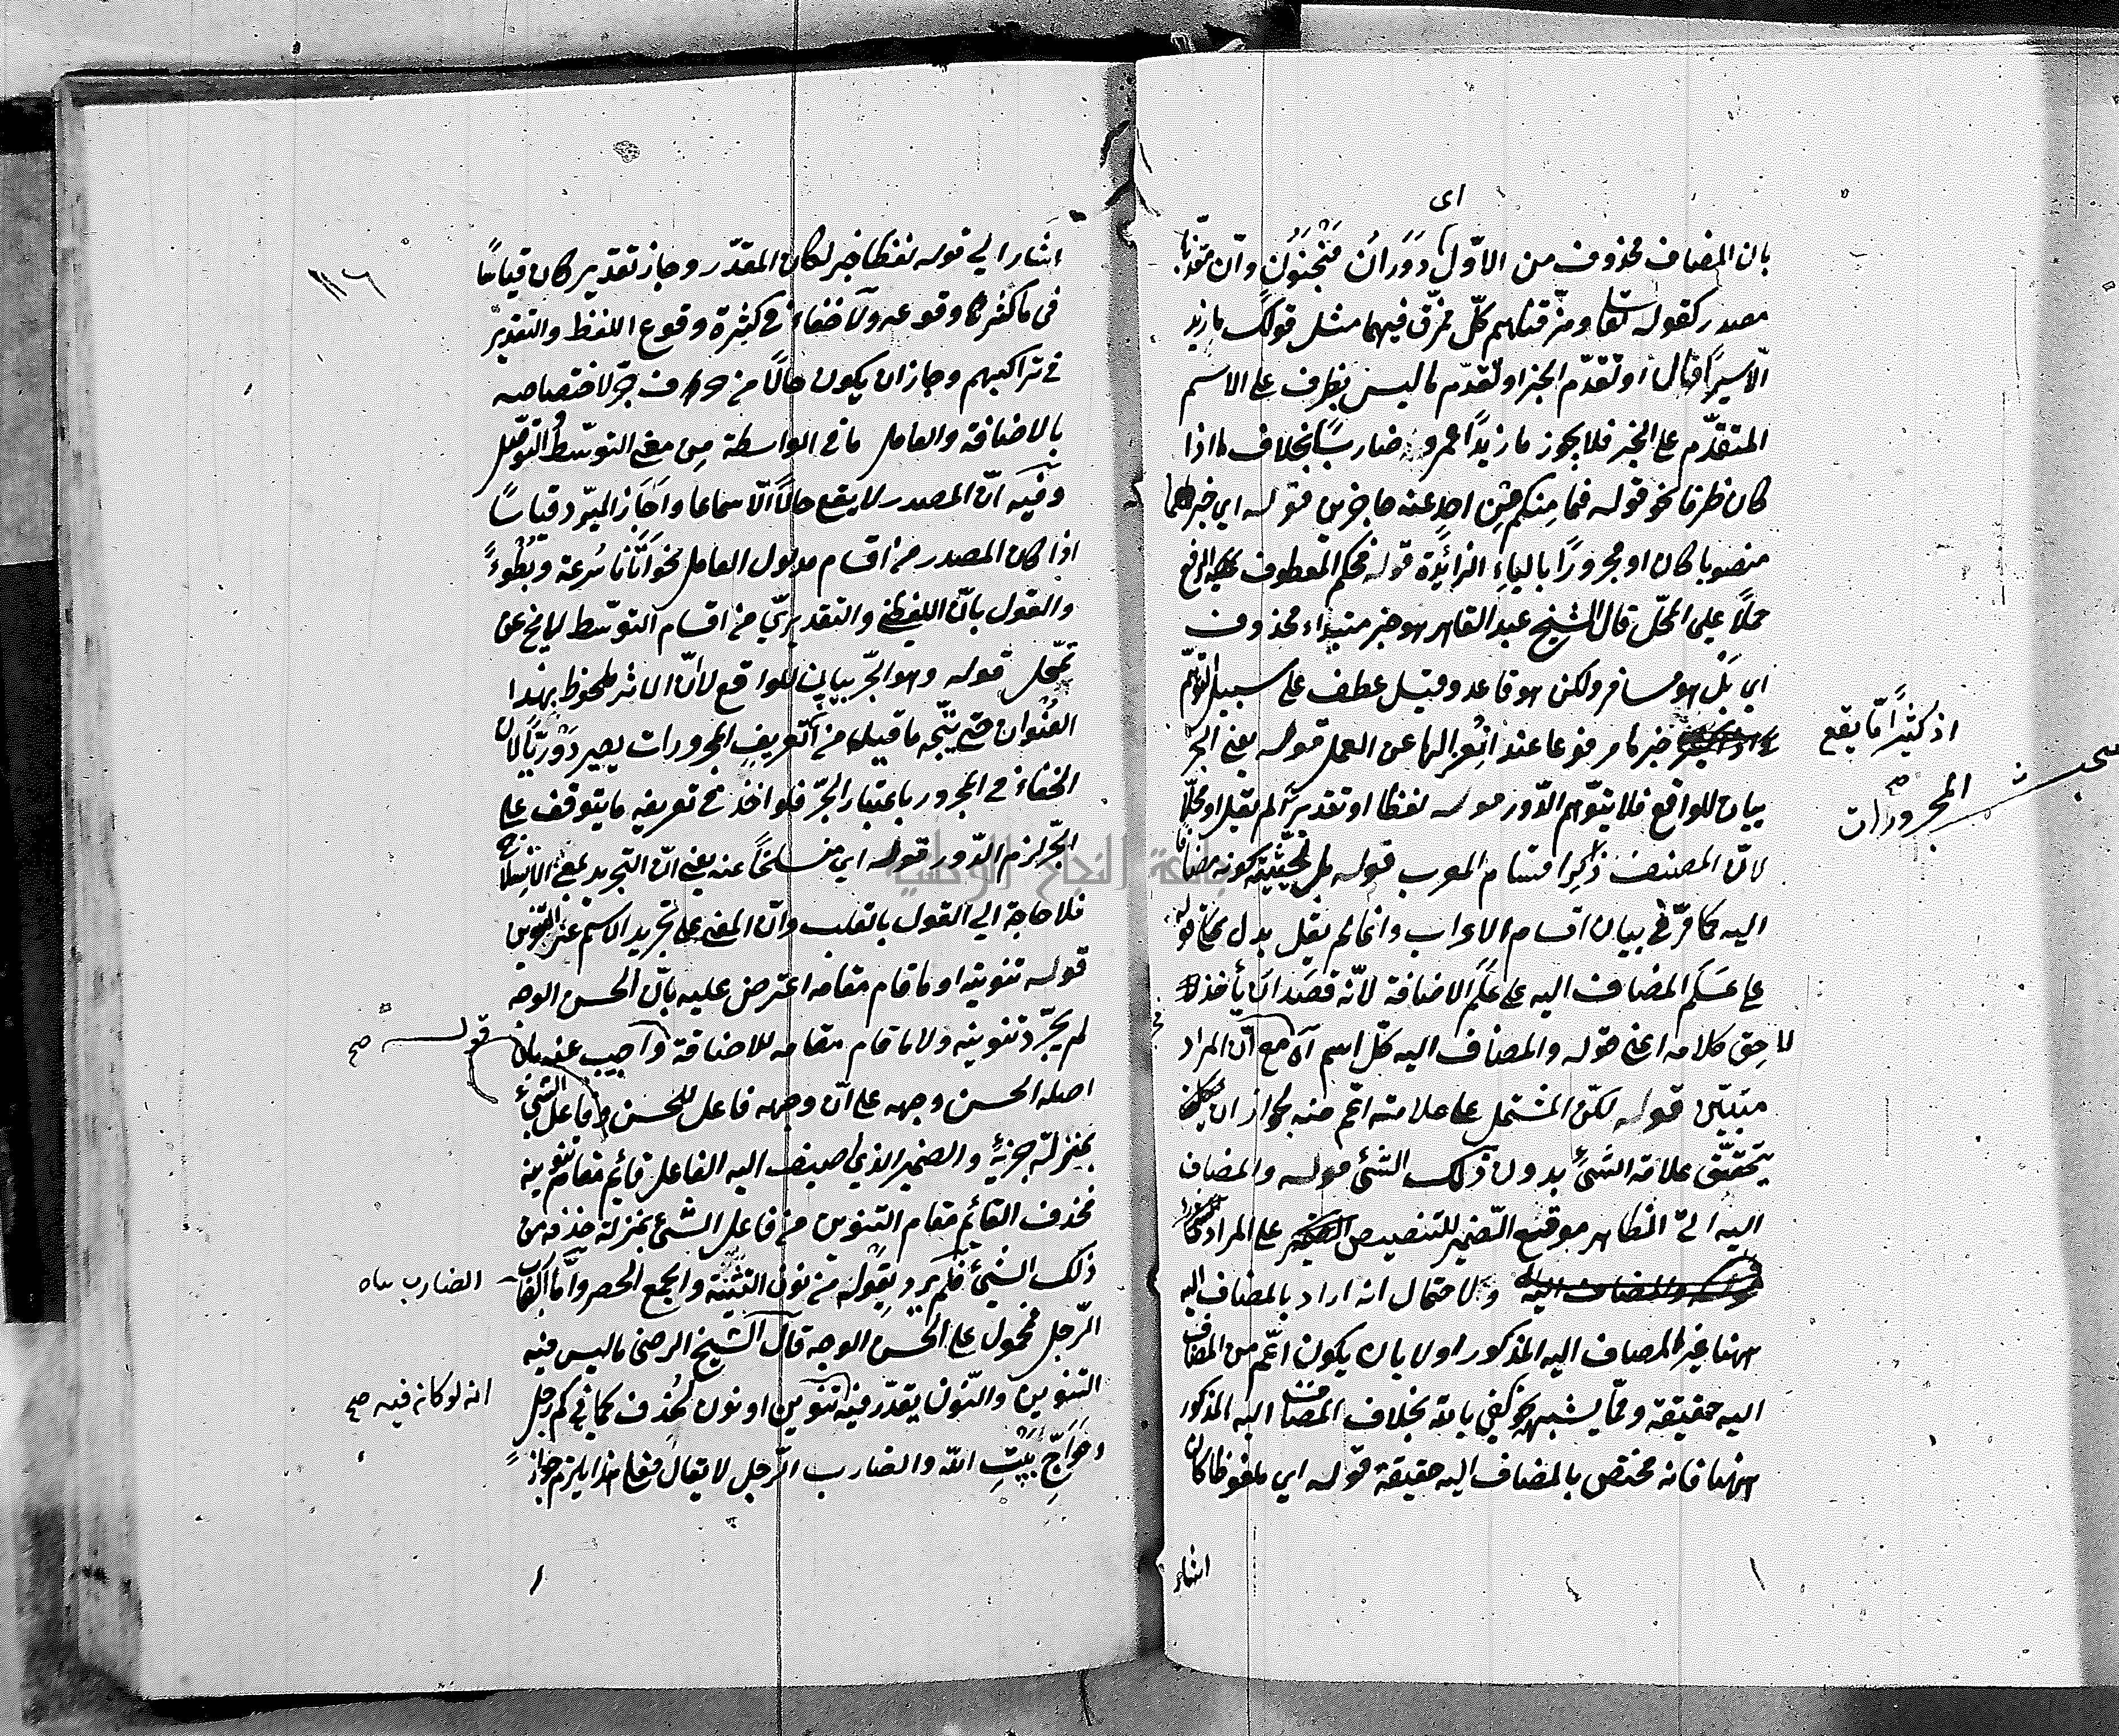 اى
بان المضاف محذوف من الاوّل دَوَرانُ مَنْجَنُونٍ وانّ معذّبا
مصدر كقوله تعا ومزّقناهم كلّ ممزّق فيهما مثل قولك ما زيد
الّا سيرًا قال او تقدّم الخبر او تقدّم ما ليس بظرف على الاسم
المتقدّم على الخبر فلا يجوز ما زيدًا عمرو ضاربًا بخلاف ما اذا
كان ظرفا نحو قوله فما منكم مِن احدٍ عنه حاجزين قوله اى خبرهما
منصوبا كان او مجرورًا بالباءِ الزائدة قوله فحكم المعطوف الرفع
حملاً على المحلّ قال الشيخ عبد القاهر هو خبر مبتداء محذوف
اي بَلْ هو مسافر ولكن هو قاعد وقيل عطف على سبيل التوهّم
اذ كثيرًا مّا يقع
خبرها مرفوعا عند انعزالها عن العمل قوله يعنى الجر
مبحث المجرورات
بيان للواقع فلا يتوهم الدّور قوله لفظا او تقديرًا لم يقل او محلّا
لانّ المصنف ذاكر اقسام المعرب قوله من حيثية كونه مضافا
اليه كما مرّ فى بيان اقسام الاعراب وانما لم يقل بدل قوله
على عَلَم المضاف اليه على عَلَم الاضافة لانّه قصَد ان يأخذ
لاحِق كلامه اعنى قوله والمضاف اليه كلّ اسم آه مع انّ المراد
متبيّن قوله لكنّ المشتمل على علامته اعمّ منه لجواز ان
يتحقّق علامة الشئ بدون ذلك الشئ قوله والمضاف
اليه الخ الظاهر موقع الضّمير للتنصيص على المراد
ولاحتمال انه اراد بالمضاف اليه
ههنا غير المضاف اليه المذكور اولا بان يكون اعّم من المضاف
اليه حقيقة وممّا يشبهه نحو كفى بالله بخلاف المضاف اليه المذكور
ههنا فانه مختص بالمضاف اليه حقيقة قوله اي ملفوظا كان
اشار
١١٦
اشار الي قوله لفظا خبر لكان المقدّر وجاز تقدير كان قياسًا
فى ما كثر وقوعه ولا خفاء فى كثرة وقوع اللفظ والتقدير
فى تراكيبهم وجاز ان يكون حالًا من حرف جرّ لاختصاصه
بالاضافة والعامل ما فى الواسطة مِن معنى التوسّط التوصّل
وفيه انّ المصدر لا يقع حالًا الّا سماعا واَجَازَ المبرّد قياسًا
اذا كان المصدر من اقسام مدلول العامل نحو اَتَانَا سُرعةً وبُطْوءً
والقول بانّ اللفظىّ والتقديرىّ من اقسام التوسّط لا يخ عن
تمحّل قوله وهو الجرّ بيان للواقع لانّ الاثر ملحوظ بهذا
العُنوان حتى يتّجه ما قيل من انّ تعريف المجرورات يصير دَوْرِيًّا لان
الخفاءَ فى المجرور باعتبار الجرّ فلو اخذ فى تعريفه ما يتوقف على
الجّر لزم الدّور قوله اى منسلخًا عنه يعنى انّ التجريد بمعنى الانسلاخ
فلا حاجة الي القول بالقلب وانّ المعنى على تجريد الاسم عن التنوين
قوله تنوينه او ما قام مقامه اعترض عليه بانّ الحسن الوجه
لم يجرّد تنوينه ولا ما قام مقامه للاضافة واجيب عنه بان
قوله صح
اصله الحسن وجهه على انّ وجهه فاعل للحسن وفاعل الشئ
بمنزلة جزئه والضمير الذي اضيف اليه الفاعل قائم مقام تنوينه
فحذف القائم مقام التنوين من فاعل الشئ بمنزلة حذفه من
ذلك الشئ فلم يرد بقوله من نون التثنية والجمع الحصر وامّا الضارب
الرّجل فمحمول على الحسن الوجه قال الشيخ الرضى ما ليس فيه
التنوين والنّون يقدّر فيه تنوين او نون تُحذف كما فى كم رجل
انه لو كان فيه صح
وحَوَاجِّ بَيْتِ الله والضارب الرّجل لا يقال فعلى هذا يلزم جواز